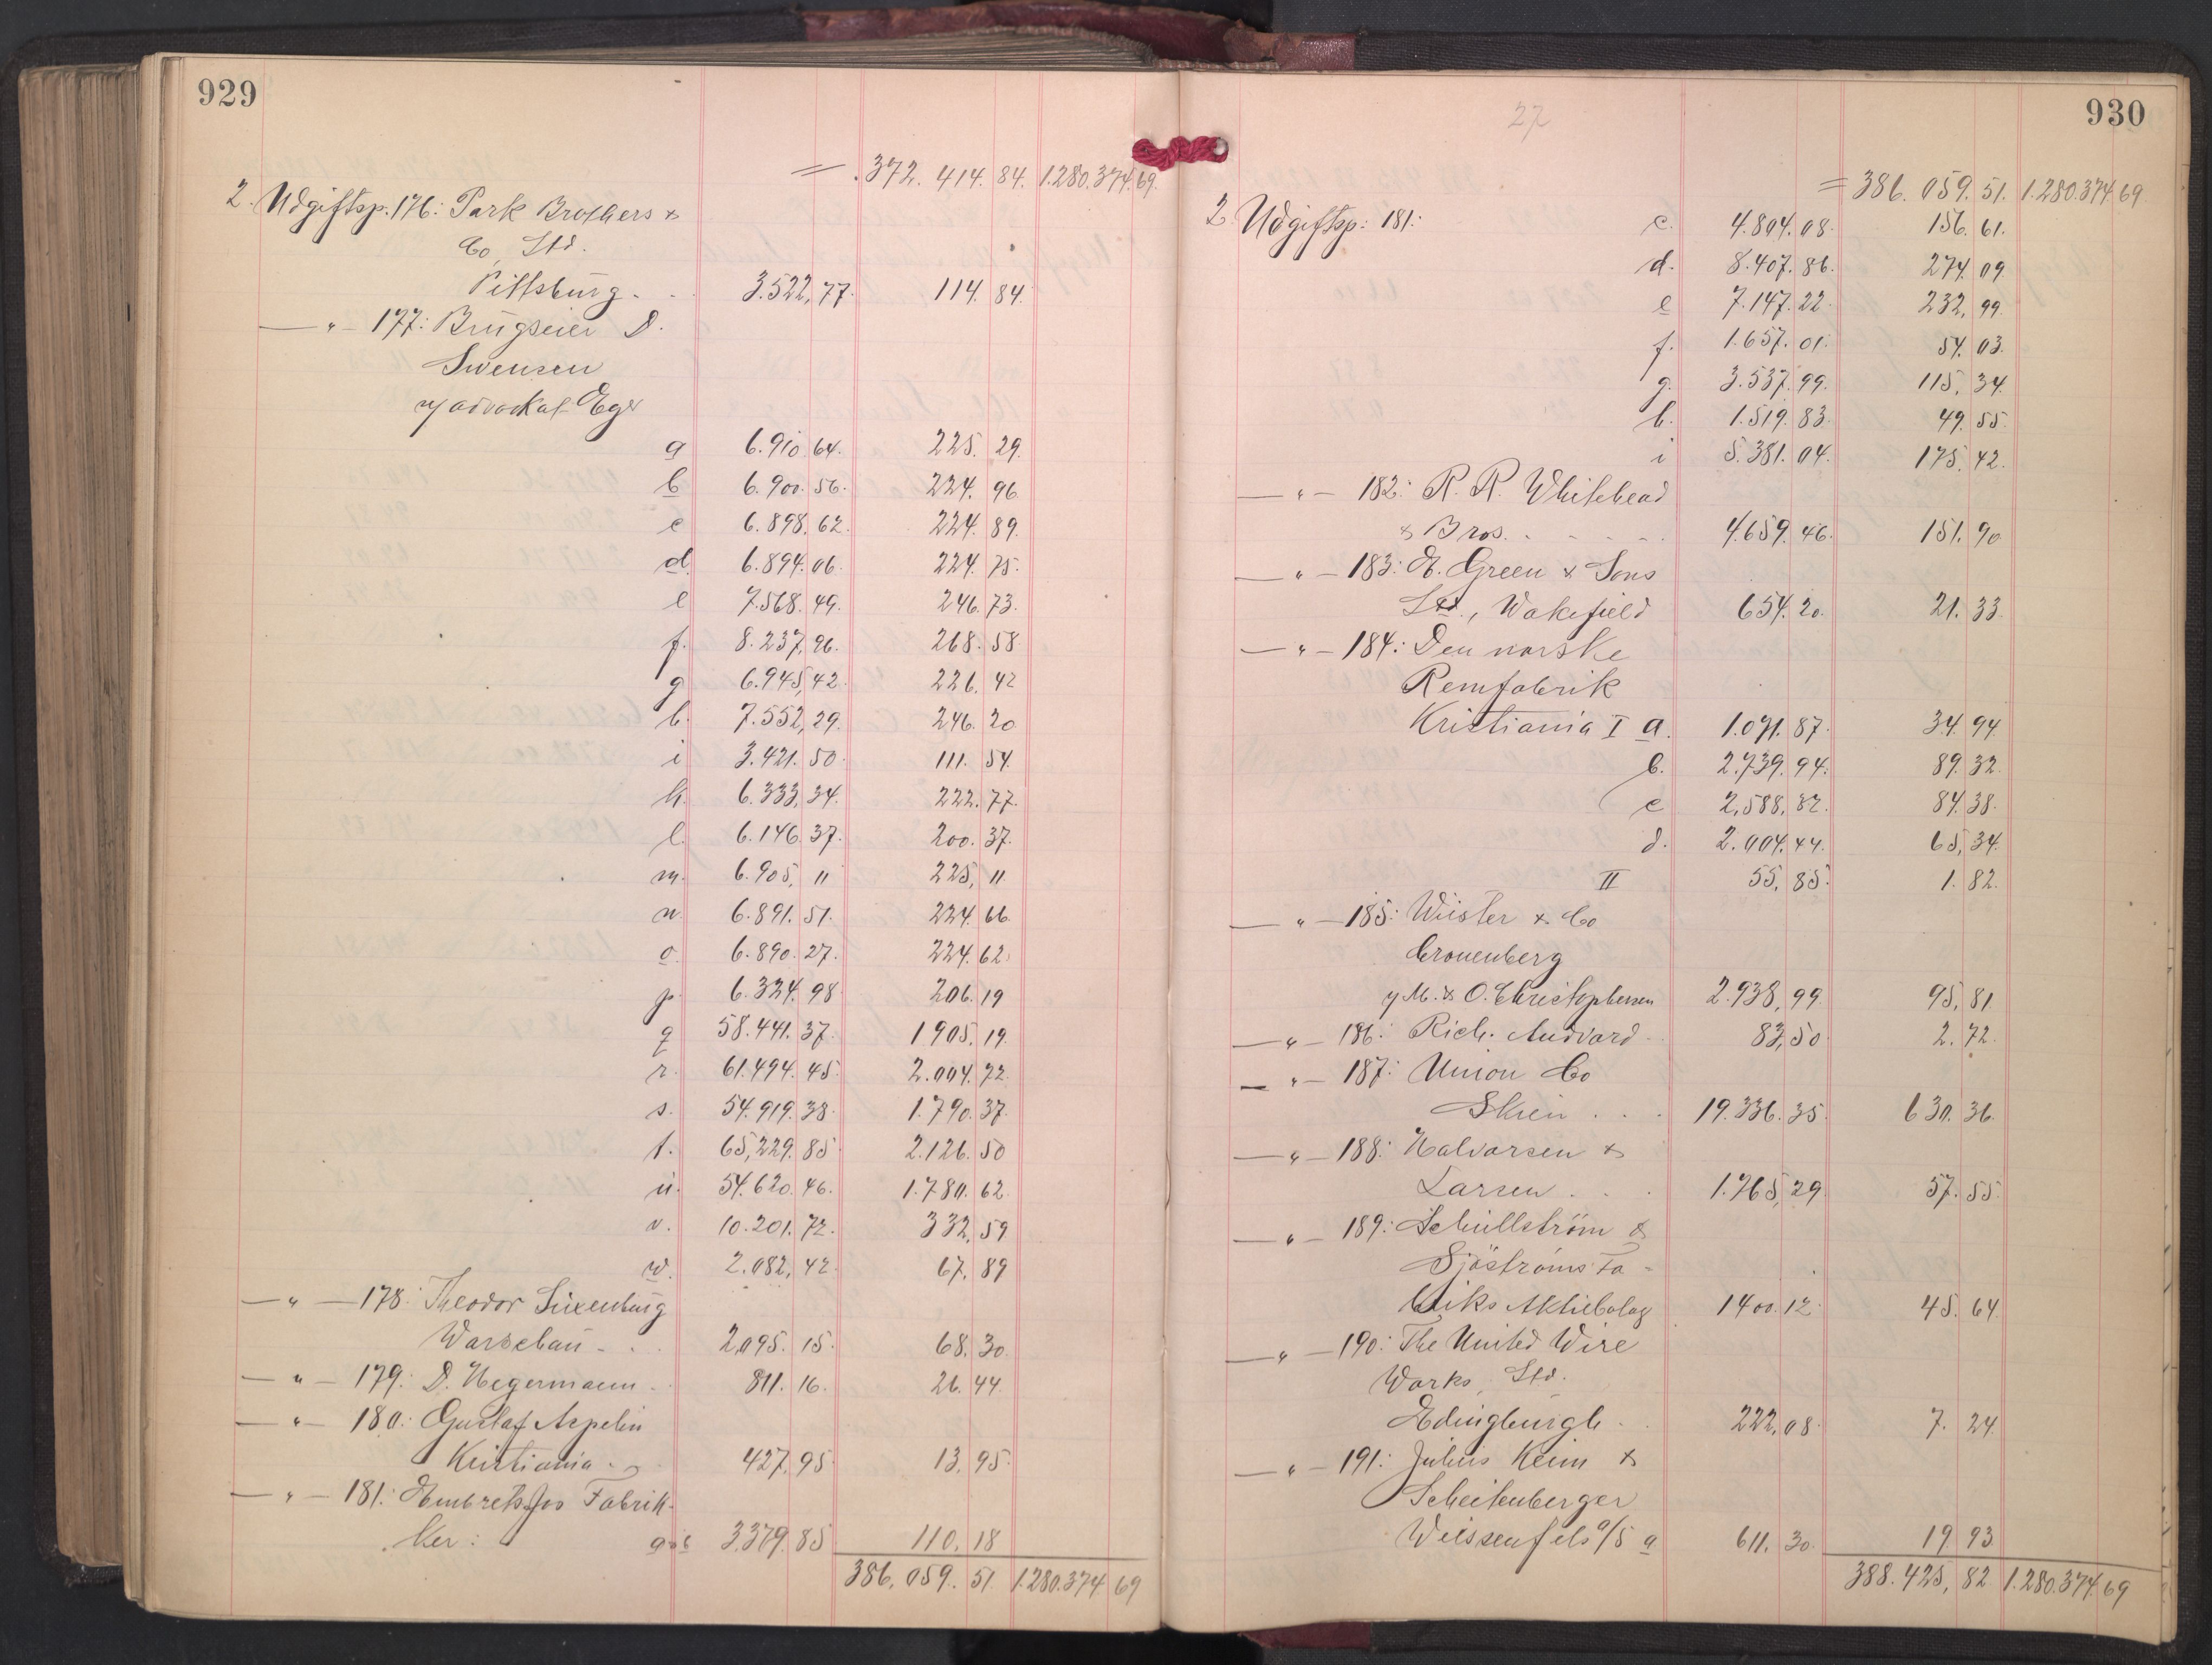 929
= 372. 414. 84. 1.280.374.69.
2. Udgiftsp. 176: Park Brothers &
Co, Ltd.
Pittsburg. . 3.522,77. 114. 84.
— " — 177: Brugseier D.
Svensen
v/ advokat Eger
a 6.910 64. 225. 29.
b 6.900. 56. 224. 96
c 6.898. 62. 224. 89.
d. 6.894. 06. 224. 75.
e 7.568. 49. 246. 73.
f. 8.237,96. 268. 58
g 6.945,42. 226. 42
h. 7.552,29. 246. 20
i 3.421. 50. 111. 54.
k. 6.333,34. 222. 77.
l. 6.146. 37. 200. 37.
m. 6.905, 11 225, 11.
n. 6.891. 51. 224. 66
o. 6.890. 27. 224. 62.
p. 6.324. 98. 206. 19
q 58.441. 37. 1905. 19.
r. 61.494. 45. 2.004. 72.
s. 54.919. 38. 1.790. 37.
t. 65,229. 85. 2.126. 50
u. 54.620. 46. 1.780. 62.
v. 10.201. 72. 332, 59
w. 2.082, 42. 67, 89
— " — 178: Theodor Luxenburg
Warschau . . 2,095. 15. 68. 30.
— " — 179: D. Hegermann. 811. 16. 26. 44.
— " — 180: Gustaf Aspelin
Kristiania . . 427,95. 13, 95.
— " — 181: Embretsfos Fabrik-
ker: a & b 3.379. 85 110, 18
386, 059. 51. 1.280.374 69
27
930
= 386. 059. 51. 1.280.374 69.
2 Udgiftsp: 181: c. 4.804. 08. 156. 61.
d. 8.407. 86. 274. 09.
e 7.147. 22. 232, 99.
f. 1.657. 01. 54. 03.
g. 3.537. 99. 115, 34.
h. 1.519. 83. 49. 55.
i 5.381. 04. 175. 42.
— " — 182: R. R. Whitehead
& Bros. . . . . 4.659. 46. 151. 90
— " — 183: E. Green & Sons
Ltd., Wakefield 654. 20. 21. 33.
— " — 184: Den norske
Remfabrik
Kristiania I a. 1.071. 87. 34. 94.
b. 2.739. 94. 89. 32.
c 2,588, 82. 84. 38.
d. 2.004. 44. 65, 34.
II 55, 85. 1. 82.
— " — 185: Wüster & Co
Cronenberg
v/ M. & O. Christophersen 2.938, 99. 95, 81.
— " — 186: Rich. Andvord . 83,50 2. 72.
— " — 187: Union Co
Skien . . . 19.336. 35. 630. 36.
— " — 188: Halvorsen &
Larsen . . . 1.765, 29. 57. 55.
— " — 189: Schullström &
Sjöströms Fa-
briks Aktiebolag 1400. 12. 45. 64.
— " — 190: The United Wire
Works, Ltd.
Edingburgh . . 222,08. 7. 24.
— " — 191: Julius Keim &
Scheitenberger
Weissenfels a/S a 611. 30. 19. 93.
388. 425, 82 1.280.374.69